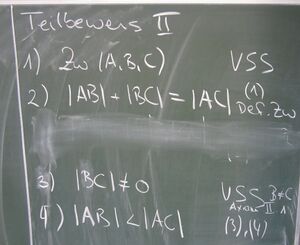 Teilbeweis II
1) Zw (A,B,C) VSS
2) |AB| + |BC| = |AC| (1) Def. Zw
3) |BC| ≠ 0 VSS B≠C Axiom II
4) |AB| < |AC| (3), (4)